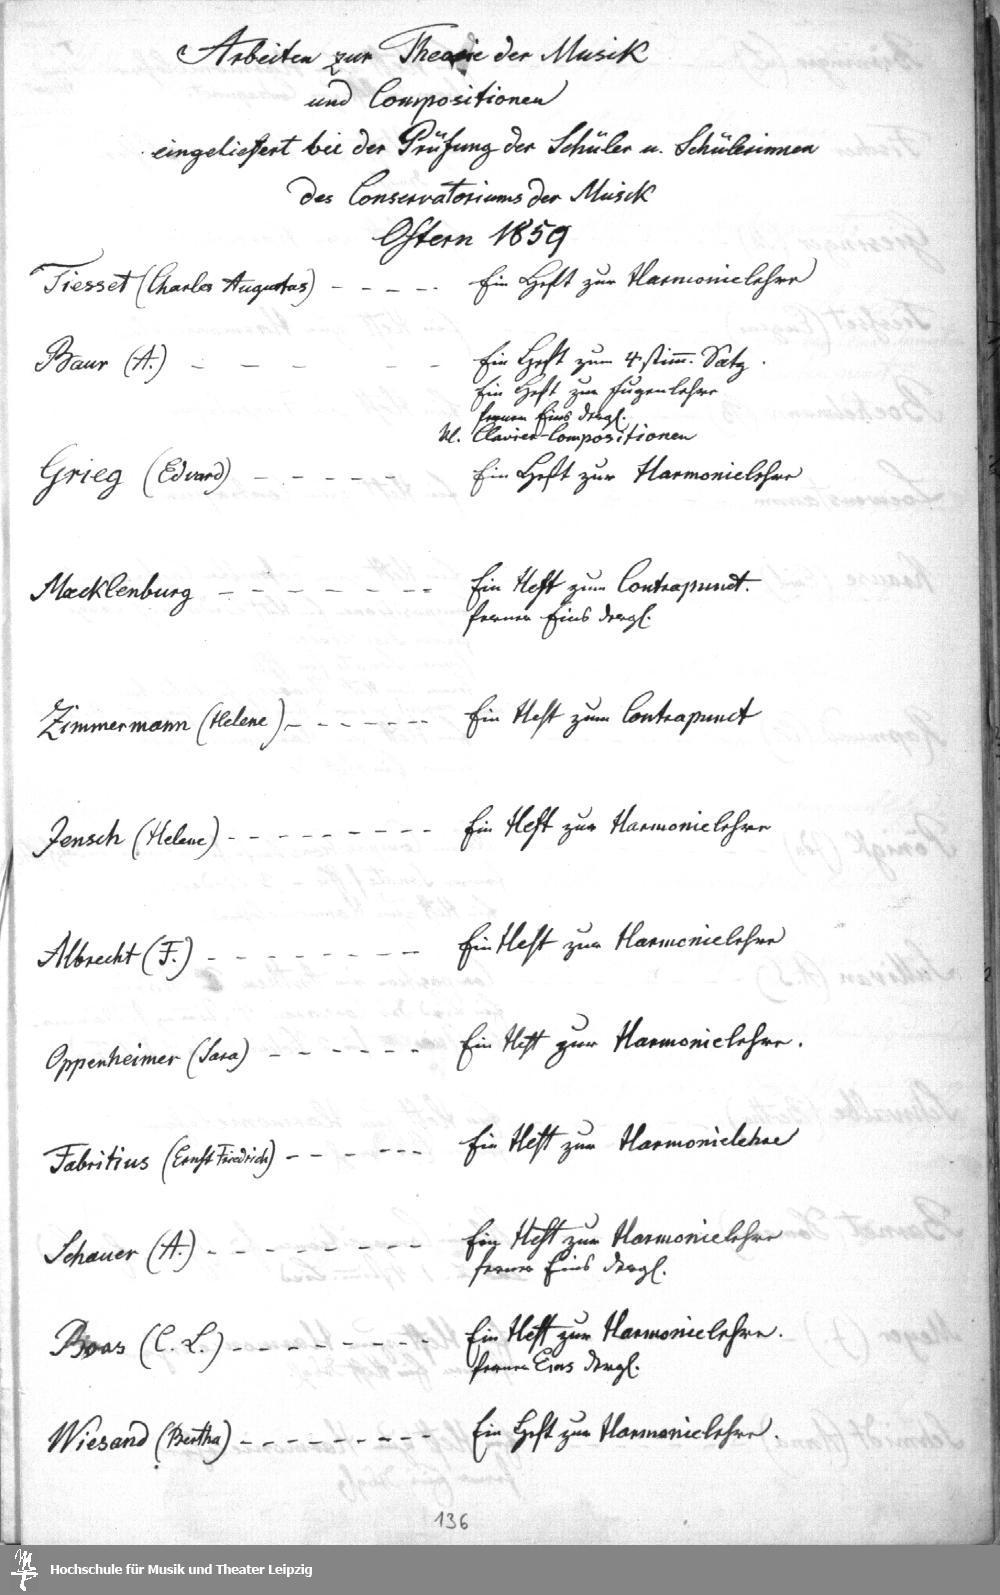 Arbeiten zur Theorie der Musik
und Compositionen
eingeliefert bei der Prüfung der Schüler u. Schülerinnen
des Conservatoriums der Musik
Ostern 1859
Tiesset (Charles Augustas) - - - - . Ein Heft zur Harmonielehre
Baur (A.) - - - - - Ein Heft zum 4 stimm. Satz.
Ein Heft zur Fugenlehre
ferner Eins dergl.
kl. Clavier-Compositionen
Grieg (Edvard) - - - - - Ein Heft zur Harmonielehre
Mecklenburg - - - - - - - Ein Heft zum Contrapunct.
ferner Eins dergl.
Zimmermann (Helene) - - - - - - Ein Heft zum Contrapunct
Jensch (Helene) - - - - - - - - - Ein Heft zur Harmonielehre
Albrecht (F.) - - - - - - - - Ein Heft zur Harmonielehre
Oppenheimer (Sara) - - - - - - Ein Heft zur Harmonielehre.
Fabritius (Ernst Friedrich) - - - - - - Ein Heft zur Harmonielehre
Schauer (A.) - - - - - - - - Ein Heft zur Harmonielehre
ferner Eins dergl.
Boas (C. L.) - - - - - - - - Ein Heft zur Harmonielehre.
ferner Eins dergl.
Wiesand (Bertha) - - - - - - - - - Ein Heft zur Harmonielehre.
136
Hochschule für Musik und Theater Leipzig